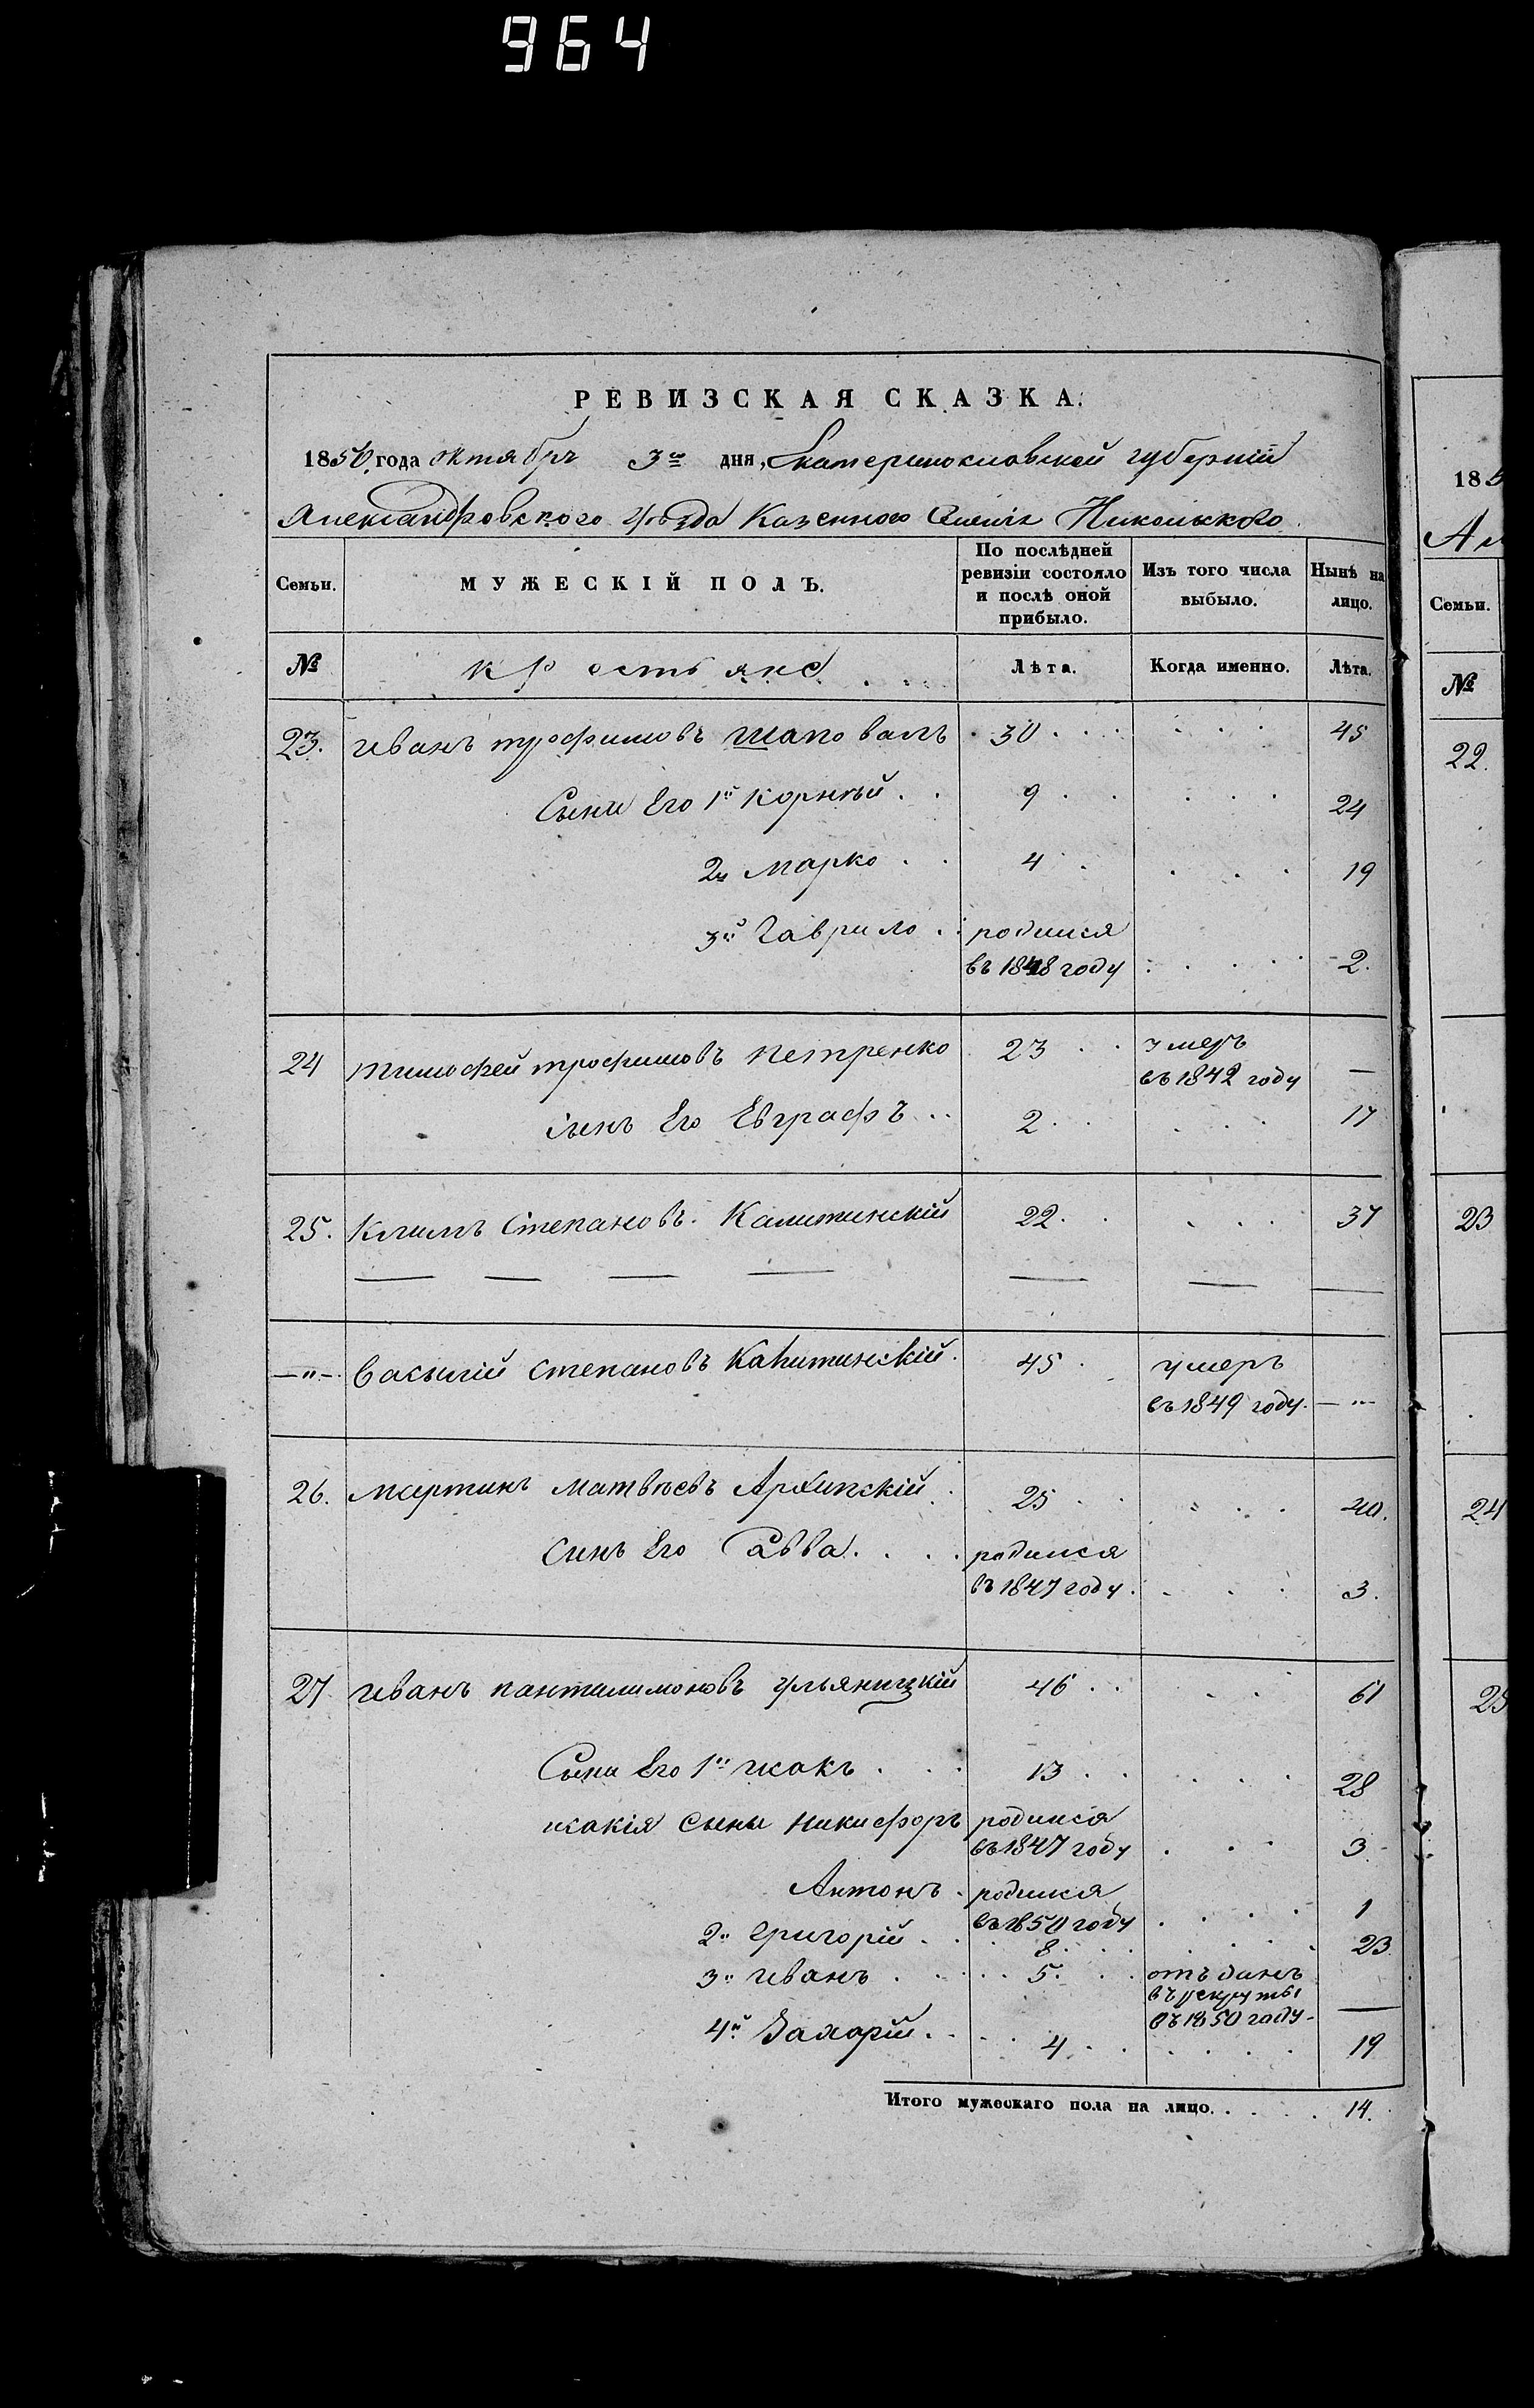 964
РЕВИЗСКАЯ СКАЗКА.
1850 года октября 3го дня, Екатеринославской губерніи
Александровского уѣзда Казенного Николького
Семьи. МУЖЕСКІЙ ПОЛЪ. По послѣдней ревизіи состояло и послѣ оной прибыло. Изъ того числа выбыло. Нынѣ на лицо.
№ крестьяне Лѣта. Когда именно. Лѣта.
23. Иванъ трофимовъ Шаповалъ 30 45
Сыни Его 1й Корнѣй 9 24
2й Марко 4 19
3й Гаврило родился
въ 1848 году 2.
24 Тимофей трофимовъ Петренко 23 умеръ
въ 1842 году —
сынъ Его Евграфъ 2 17
25. Климъ Степановъ Калитинскій 22 37
—"— Василій Степановъ Калитинскій 45 умеръ
въ 1849 году —"—
26. Мартинъ Матвѣевъ Архипскій 25 40.
Синъ Его Савва родился
въ 1847 году 3.
27 Иванъ панталимоновъ Ульяницкій 46 61
Сыни Его 1й исакъ 13 28
исакія Сыны Никифоръ родился
въ 1847 году 3
Антонъ родился
въ 1850 году 1
2й Григорій 8 23
3й Иванъ 5 отъданъ
въ рекруты
въ 1850 году —
4й Захарій 4 19
Итого мужескаго пола на лицо. 14.
185
Ал
Семьи.
№
22.
23
24
25